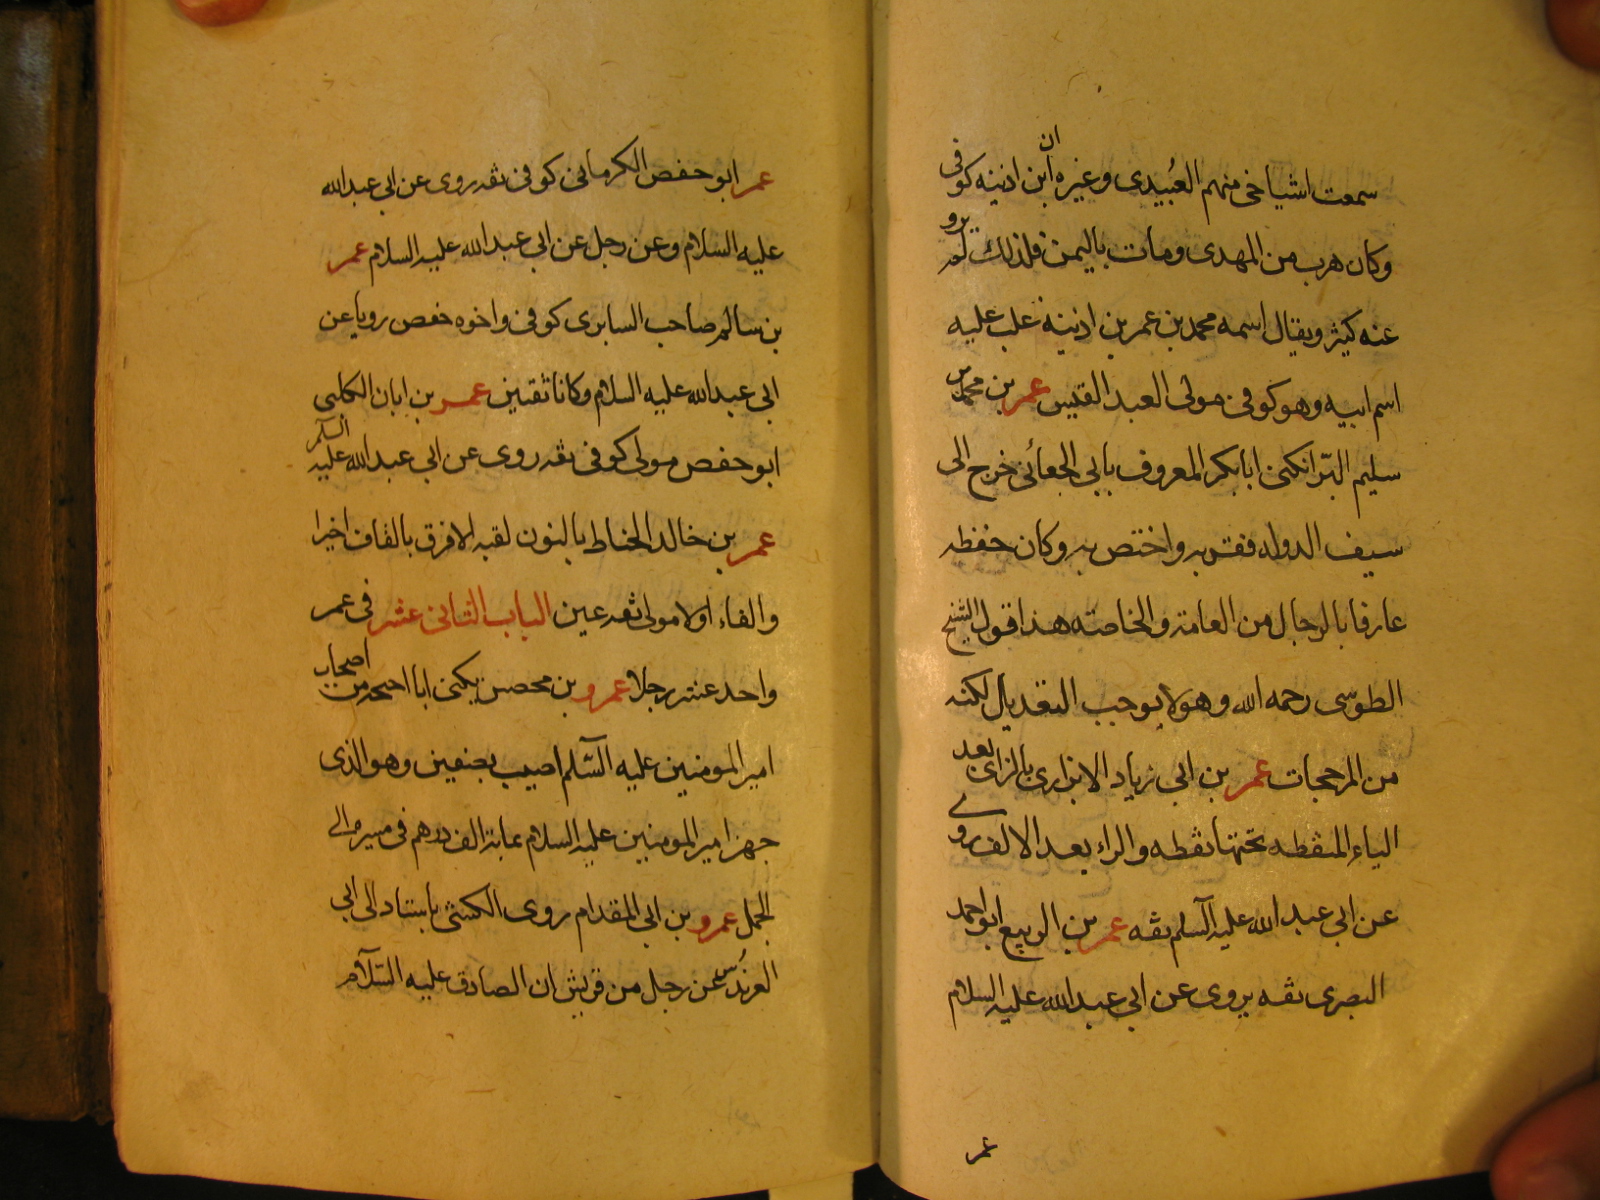 سمعت اشياخى منهم العبيدى وغيره ان ابن اذينه كوفى
وكان هرب من المهدى ومات باليمن فلذلك لم يرو
عنه كثير ويقال اسمه محمد بن عمر بن اذينه غلب عليه
اسم ابيه وهو كوفى مولى العبد القيس عمر بن محمد بن
سليم البرا يكنى ابا بكر المعروف بابى الجعابى خرج الى
سيف الدوله فقربه واختص به وكان حفظه
عارفا بالرجال من العامة والخاصه هذا قول الشيخ
الطوسى رحمه الله وهو لا يوجب التعديل لكنه
من المرجحات عمر بن ابى زياد الابزارى بالزاى بعد
الباء المنقطه تحتها نقطه والراء بعد الالف روى
عن ابى عبد الله عليه السلم ثقه عمر بن الربيع ابو احمد
البصرى ثقه يروى عن ابى عبد الله عليه السلام
عمر
عمر ابو حفص الكرمانى كوفى ثقه روى عن ابى عبد الله
عليه السلام وعن رجل عن ابى عبد الله عليه السلام عمر
بن سالم صاحب السابرى كوفى واخوه حفص رويا عن
ابى عبد الله عليه السلام وكانا ثقتين عمر بن ابان الكلبى
ابو حفص مولى كوفى ثقه روى عن ابى عبد الله عليه السلم
عمر بن خالد الحناط بالنون لقبه الافرق بالقاف اخيرا
والفاء اولا مولى ثقه عين الباب الثانى عشر فى عمر
واحد عشر رجلا عمرو بن محصن يكنى ابا احيحه من اصحاب
امير المومنين عليه السلم اصيب بصفين وهو الذى
جهز امير المومنين عليه السلام بمائة الف درهم فى مسيره الى
الجمل عمرو بن ابى المقدام روى الكشى باسناد الى ابى
العرندس عن رجل من قريش ان الصادق عليه السلام